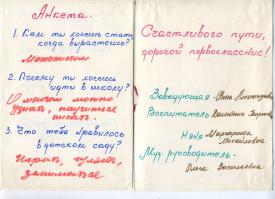 Анкета.
1. Кем ты хочешь стать,
когда вырастешь?
Машинистом
2. Почему ты хочешь
идти в школу?
О многом можно
узнать, научиться
писать.
3. Что тебе нравилось
в детском саду?
Играть, гулять,
заниматься
Счастливого пути,
дорогой первоклассник!
Заведующая - Анна
Воспитатель
Няня - Маргарита
Михайловна
Муз. руководитель -
Ольга Васильевна